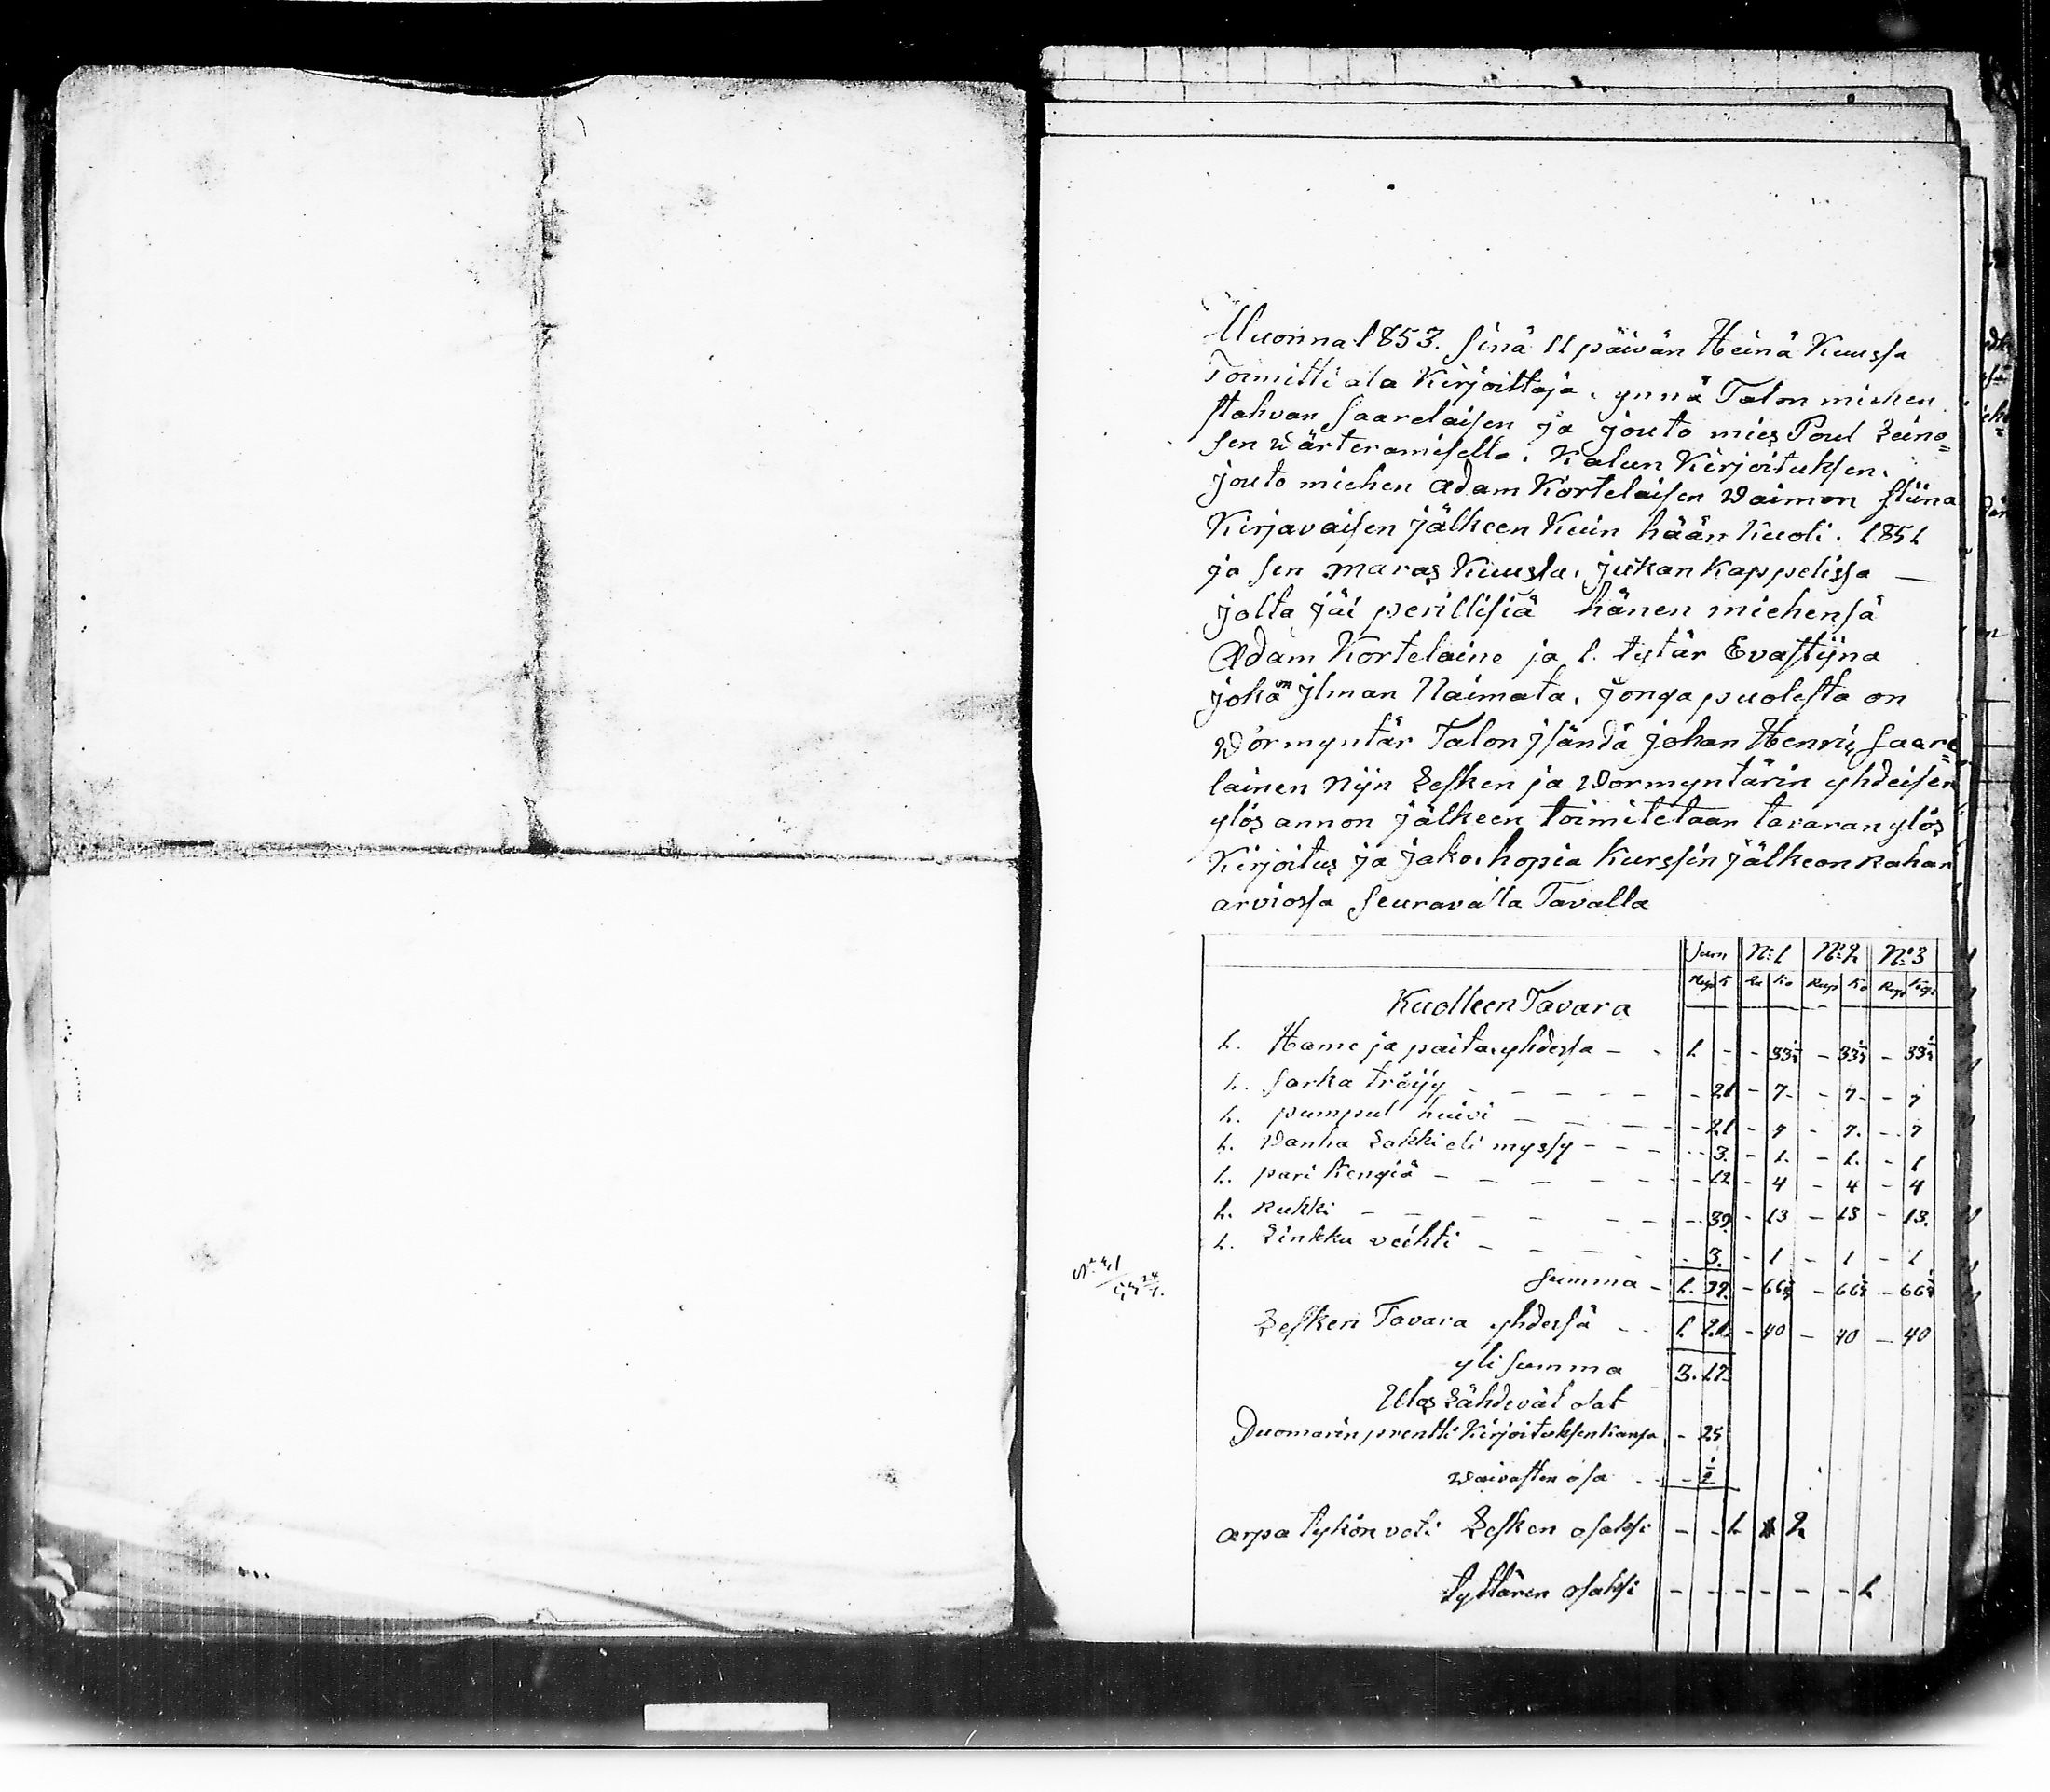 Wuonna 1853. sinä 11 päivän Heinä Kuussa
Toimitti ala Kirjoittaja, ynnä Talon miehen
stahvan Saarelaisen ja jouto mies Poul Leino=
sen wärteramisella. Kalun Kirjoituksen.
jouto miehen Adam Kortelaisen waimon stiina
Kirjavaisen jälkeen Kuin hään Kuoli. 1851
ja sen maras Kuussa, jukan Kappelissa —
jolta jäi perillisiä hänen miehensä
Adam Kortelaine ja 1. tytär Evastijna
joka on jlman Naimata, jonga puolesta on
wormyntär Talon jsändä johan Henric Saare=
lainen nijn Lesken ja wormyntärin yhdeisen
ylös annon jälkeen toimitetaan tavaran ylös
Kirjoitus ja jako, hopia kurssin jälkeen Rahan
arviossa seuravalla Tavalla
Sum N:1 N:2 N:3
Rup K Ru Ko Rup Ko Rup Kop
Kuolleen Tavara
1. Hame ja paita yhdessä - - 1. - - 33⅓ - 33⅓ - 33⅓
1. sarka tröijy - - - - - 21 - 7 - 7 - 7
1. pumpul huivi - - - - 21 - 7 - 7 - 7
1. Vanha Lakki eli myssy - - - 3. - 1. - 1. - 1
1. pari Kengiä - - - - - 12 - 4 - 4 - 4
1. Rukki - - - - - 39. - 13 - 13 - 13.
1. Linkku veihti - - - - 3. - 1 - 1 - 1
Summa - 1. 99. - 66⅓ - 66⅓ - 66⅓
Lesken Tavara yhdessä - - 1 20 - 40 - 40 - 40
yli summa 3. 19
Ulos Lähdevät olat
Duomarin prentti Kirjoituksen kansa - 25
waivasten osa - - ½
arpa tykön veti Lesken osaksi - - 1 2
tyttären osaksi - - - - - - 1